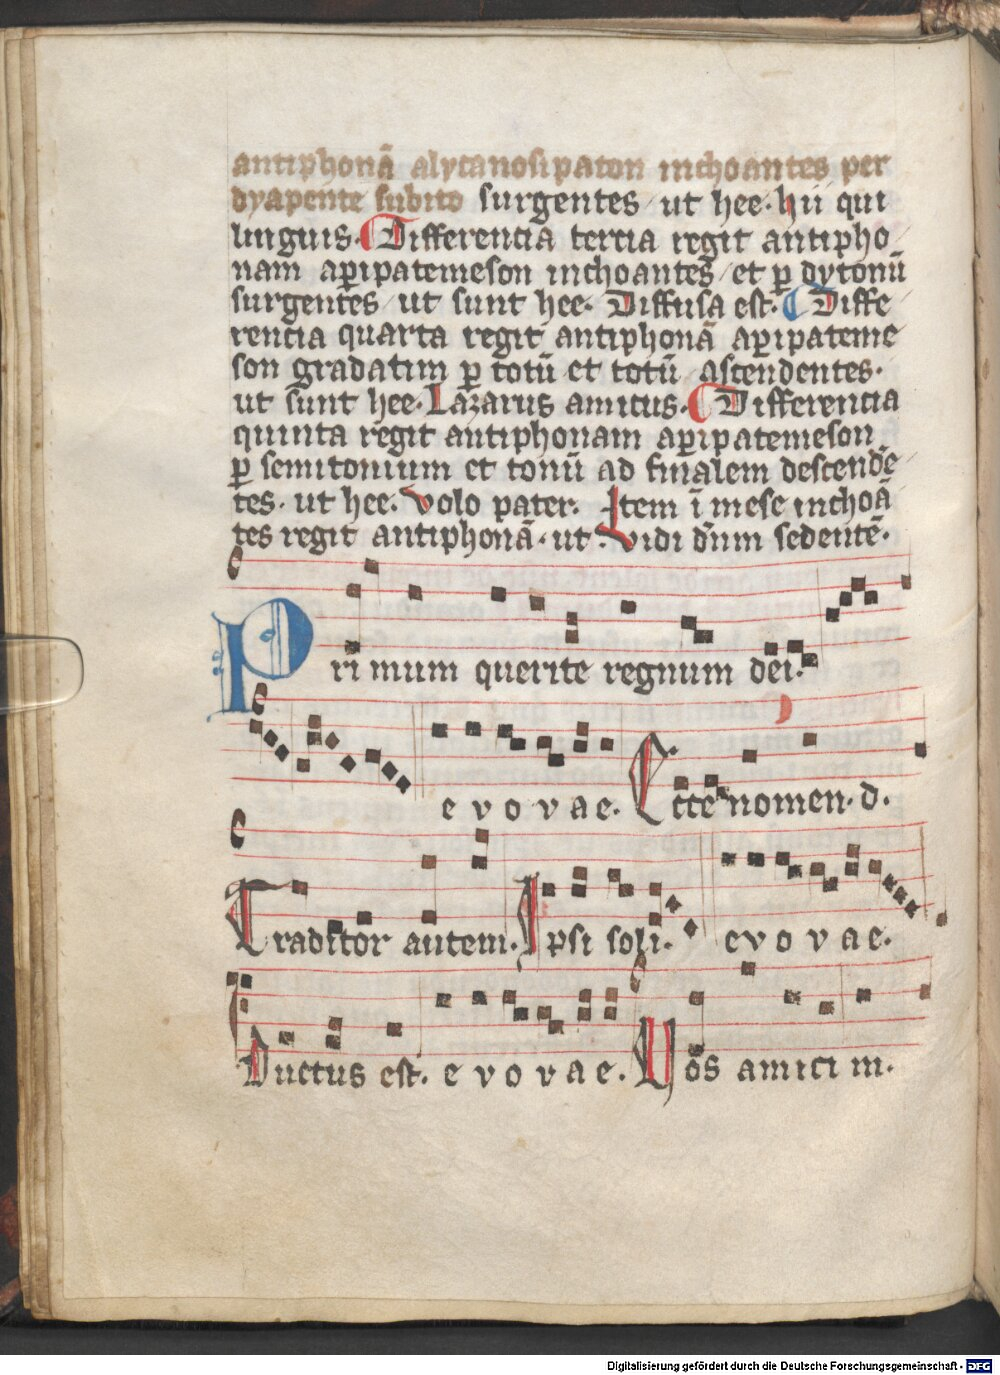 antiphonā alycanosipaton inchoantes per
dyapente subito surgentes ut hee. hii qui
linguis. Differencia tercia regit antipho
nam apͥpatemeson inchoantes et ꝑ dytonū
surgentes ut sunt hee. Diffusa est. Diffe
rencia quarta regit antiphonā apͥpateme
son gradatim ꝑ totū et totū ascendentes.
ut sunt hee. Lazarus amicus. Differencia
quinta regit antiphonam apͥpatemeson
ꝑ semitonium et tonū ad finalem descendē
tes. ut hee. Volo pater. Item ī mese inchoā
tes regit antiphonā. ut. Vidi dn̄m sedentē.
Primum querite regnum dei.
e v o v a e. Ecce nomen. d.
Traditor autem. Ipsi soli. e v o v a e.
Ductus est. e v o v a e. Vos amici m.
Digitalisierung gefördert durch die Deutsche Forschungsgemeinschaft - DFG